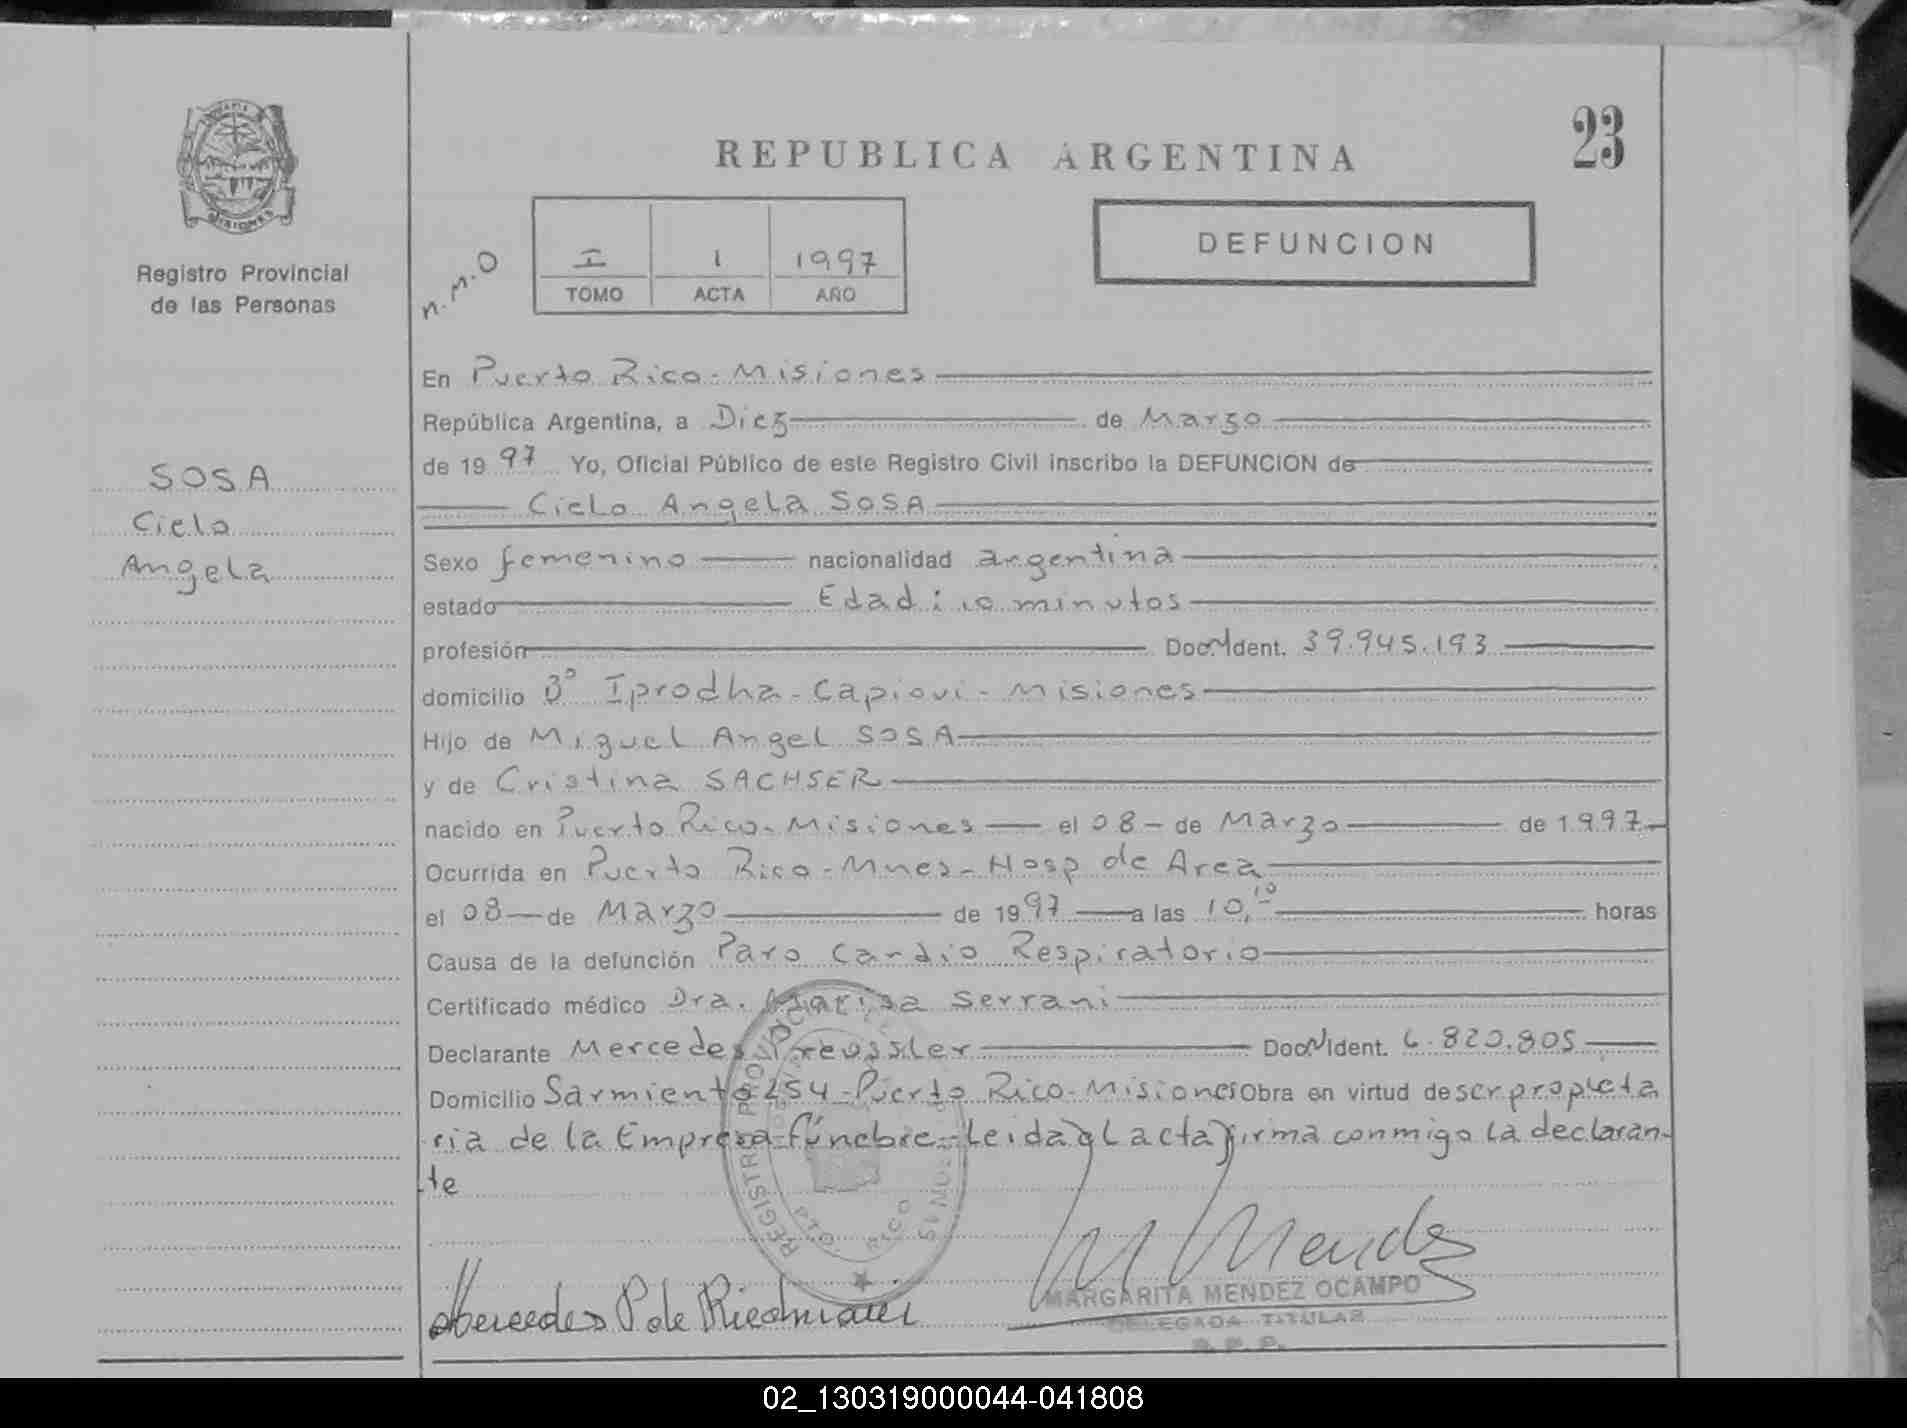 MISIONES
Registro Provincial
de las Personas
SOSA
Cielo
Angela
REPUBLICA ARGENTINA
23
n.m.o
I 1 1997
TOMO ACTA AÑO
DEFUNCION
En Puerto Rico - Misiones
República Argentina, a Diez de Marzo
de 1997 Yo, Oficial Público de este Registro Civil inscribo la DEFUNCION de
Cielo Angela SOSA
Sexo femenino nacionalidad argentina
estado Edad: 10 minutos
profesión Doc. N Ident. 39.945.193
domicilio Bº Iprodha - Capiovi - Misiones
Hijo de Miguel Angel SOSA
y de Cristina SACHSER
nacido en Puerto Rico - Misiones el 08 - de Marzo de 1997
Ocurrida en Puerto Rico - Mnes - Hosp de Area
el 08 - de Marzo de 1997 a las 10,10 horas
Causa de la defunción Paro Cardio Respiratorio
Certificado médico Dra. Marisa Serrani
Declarante Mercedes Preussler Doc. N Ident. 6.820.805
Domicilio Sarmiento 254 - Puerto Rico - Misiones Obra en virtud de ser propieta
ria de la Empresa fúnebre - Leida el acta firma conmigo la declaran-
te
REGISTRO PROVINCIAL
MISIONES
PTO. RICO
Mercedes P de Riedmaier
M Mendez
MARGARITA MENDEZ OCAMPO
DELEGADA TITULAR
R. P. P.
02_130319000044-041808